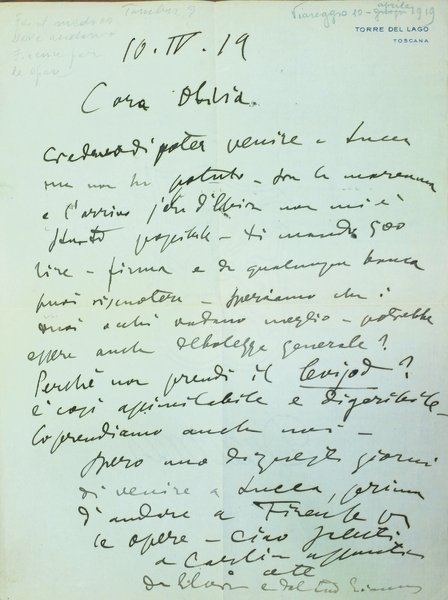 Viareggio 10 - aprile 1919
TORRE DEL LAGO
TOSCANA
10. IV. 19
Cara
Credevo di poter venire a Lucca
ma non ho potuto - tra la maremma
e l'arrivo jeri d'Elvira non mi è
stato possibile - ti mando 500
lire - firma e da qualunque banca
puoi riscuotere - speriamo che i
tuoi occhi vadano meglio - potrebbe
essere anche debolezza generale?
Perchè non prendi il
è così assimilabile e digeribile -
Lo prendiamo anche noi -
Spero uno di questi giorni
di venire a Lucca, prima
d'andare a Firenze per
le opere - ciao saluti
a Carlia
da Elvira e dal tuo Giacomo